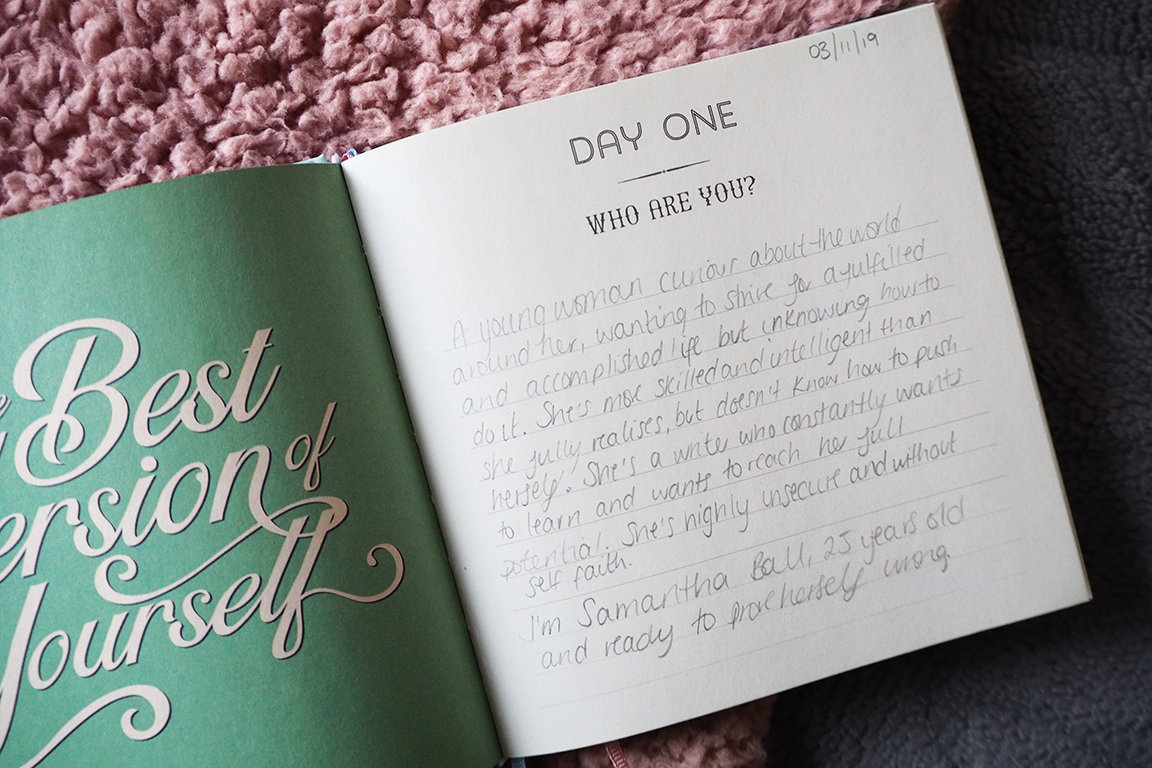 Best
ersion of
Yourself
03/11/19
DAY ONE
WHO ARE YOU?
A young woman curious about the world
around her, wanting to strive for a fulfilled
and accomplished life but unknowing how to
do it. She's more skilled and intelligent than
she fully realises, but doesn't know how to push
herself. She's a writer who constantly wants
to learn and wants to reach her full
potential. She's highly insecure and without
self faith.
I'm Samantha Ball, 25 years old
and ready to prove herself wrong.